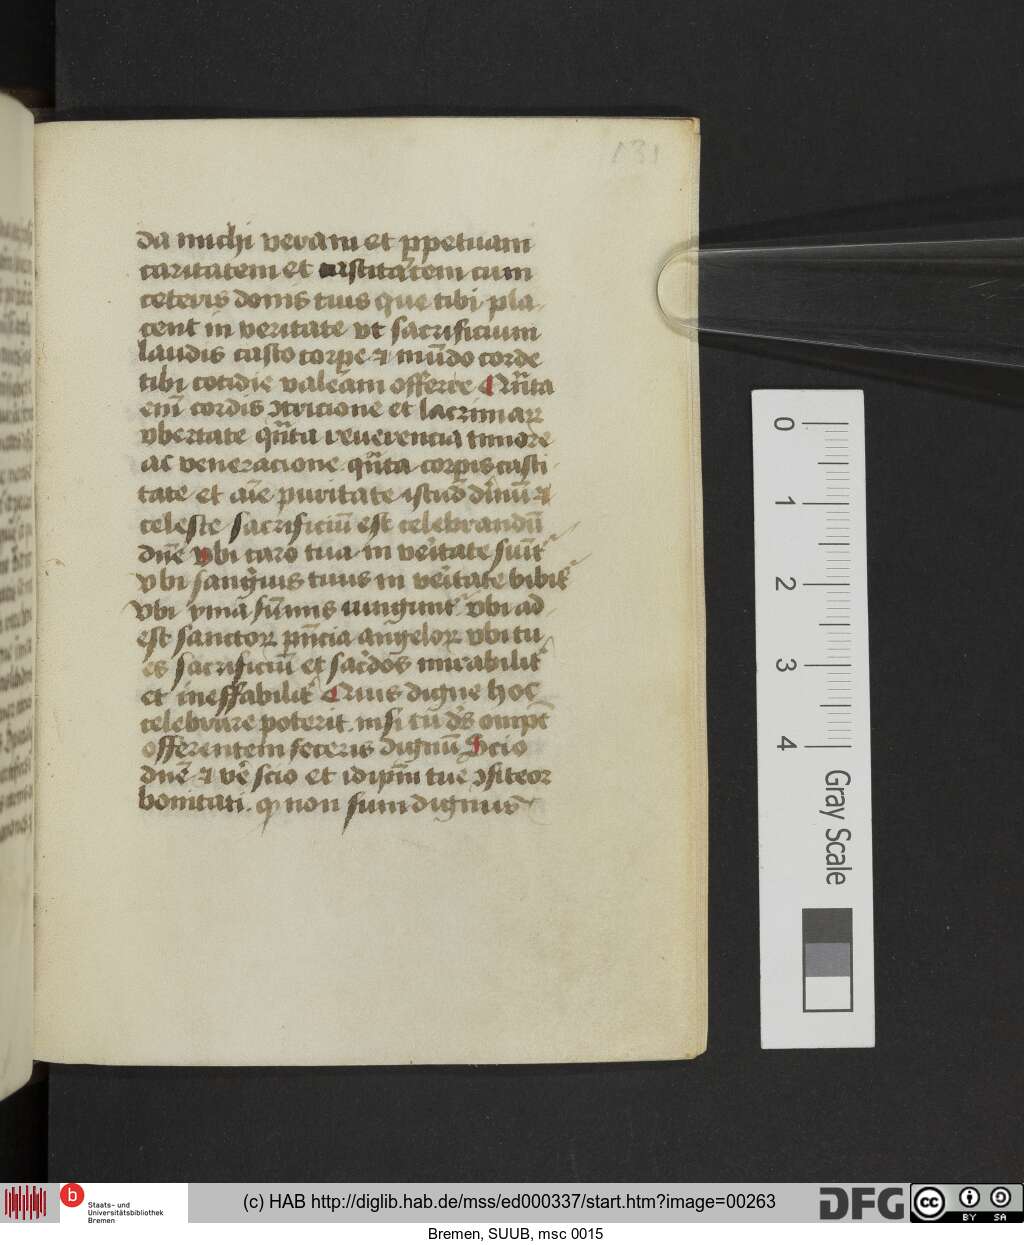 131
da michi veram et ppetuam
caritatem et castitatem cum
ceteris donis tuis que tibi pla
cent in veritate vt sacrificium
laudis casto corpe ⁊ mūdo corde
tibi cotidie valeam offerre Quāta
enī cordis ɔtricione et lacrimaꝝ
vbertate quāta reuerencia timore
ac veneracione quāta corpis casti
tate et aīe puritate istud diuinū ⁊
celeste sacrificiū est celebrandū
dn̄e vbi caro tua in veritate sumit᷑
vbi sanguis tuus in veritate bibit᷑
vbi yma summis iungunt᷑ vbi ad
est sanctoꝝ pn̄cia angeloꝝ vbi tu
es sacrificiū et sacerdos mirabilit᷑
et ineffabilit᷑ Quis digne hoc
celebrare poterit nisi tu ds̄ omīpt̄
offerentem feceris dignū Scio
dn̄e ⁊ vē scio et id ipm̄ tue ɔfiteor
bonitati ꝙ non sum dignus
0
1
2
3
4
Gray Scale
b
Staats- und
Universitätsbibliothek
Bremen
(c) HAB http://diglib.hab.de/mss/ed000337/start.htm?image=00263
DFG
cc
BY SA
Bremen, SUUB, msc 0015